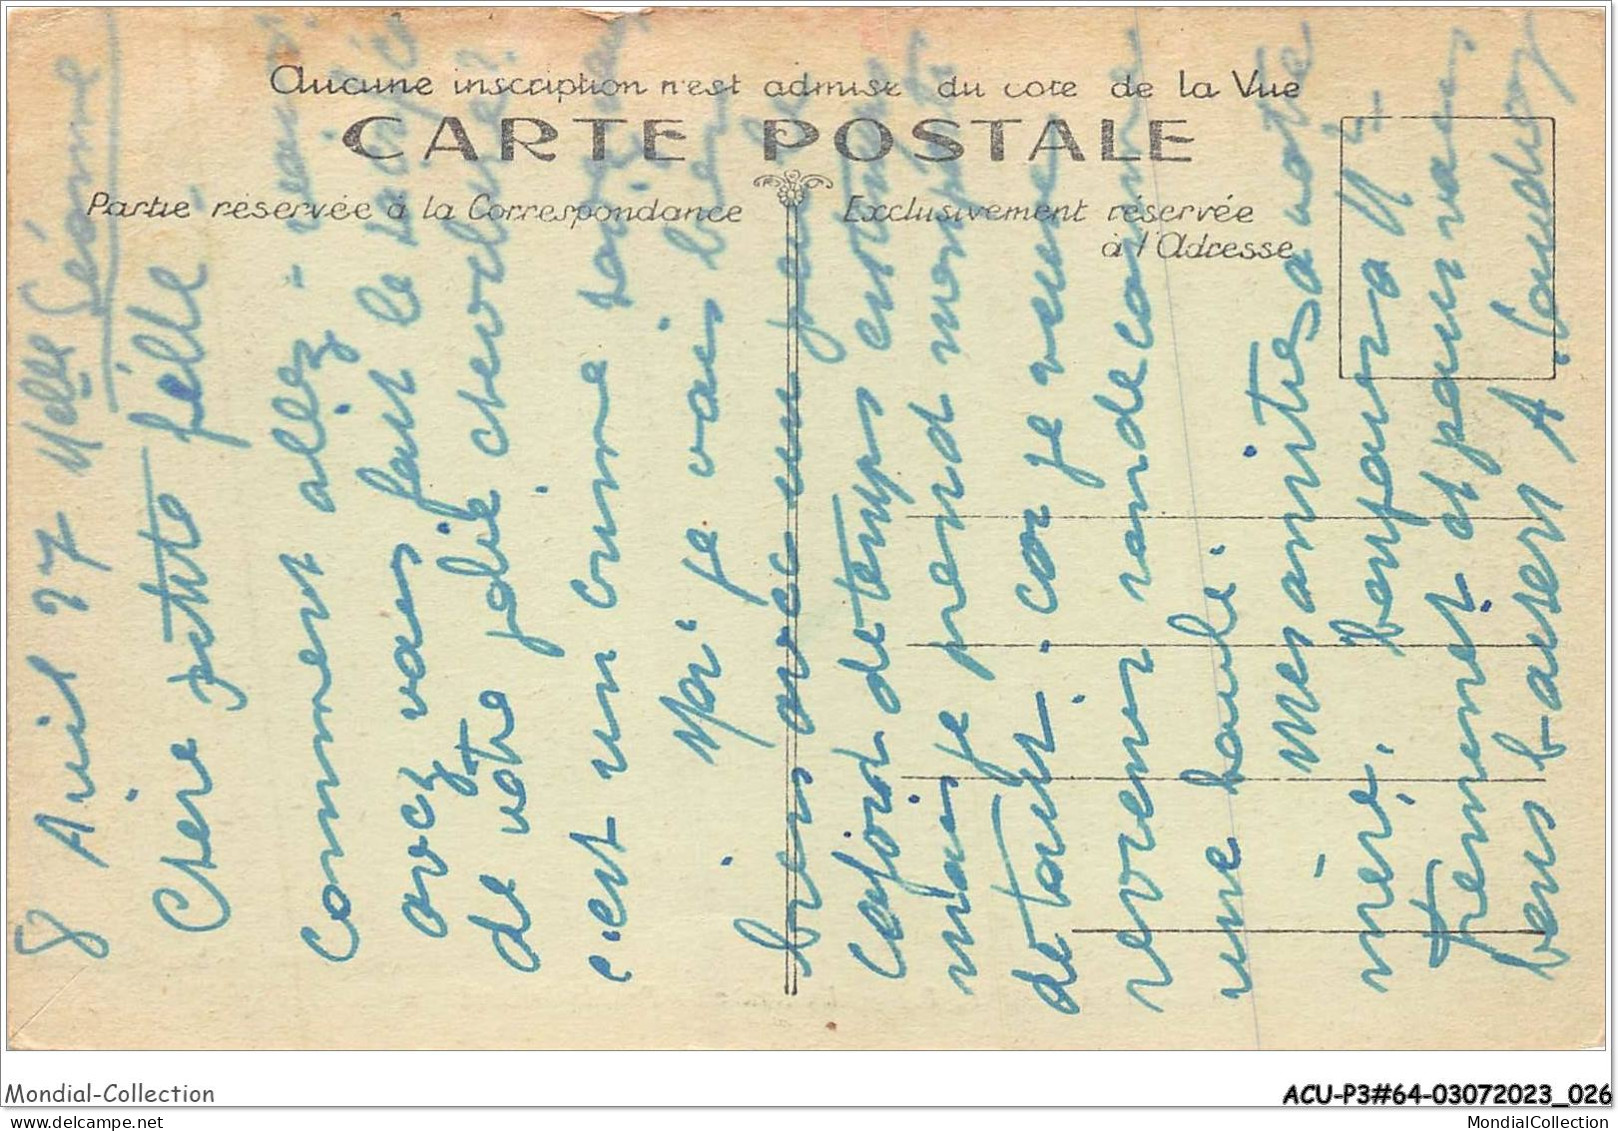 Aucune inscription n'est admise du cote de la Vue
CARTE POSTALE
Partie réservée à la Correspondance
Exclusivement réservée
à l'Adresse
8 Avril 37 Melle Jeanne
Chère petite fille
Comment allez - vous?
avez vous fait le sacrifice
de votre jolie chevelure?
c'est un crime
Moi je vais bien
bien avec un peu de
Cafard de temps en temps
mais je prend mon parti
de tout. car je veux
revenir ronde comme
une boule.
Mes amitiés a votre
mère, bonjours a Mr
Trement et pour vous
bons baisers A.
Mondial-Collection
ACU-P3#64-03072023_026
delcampe.net
MondialCollection